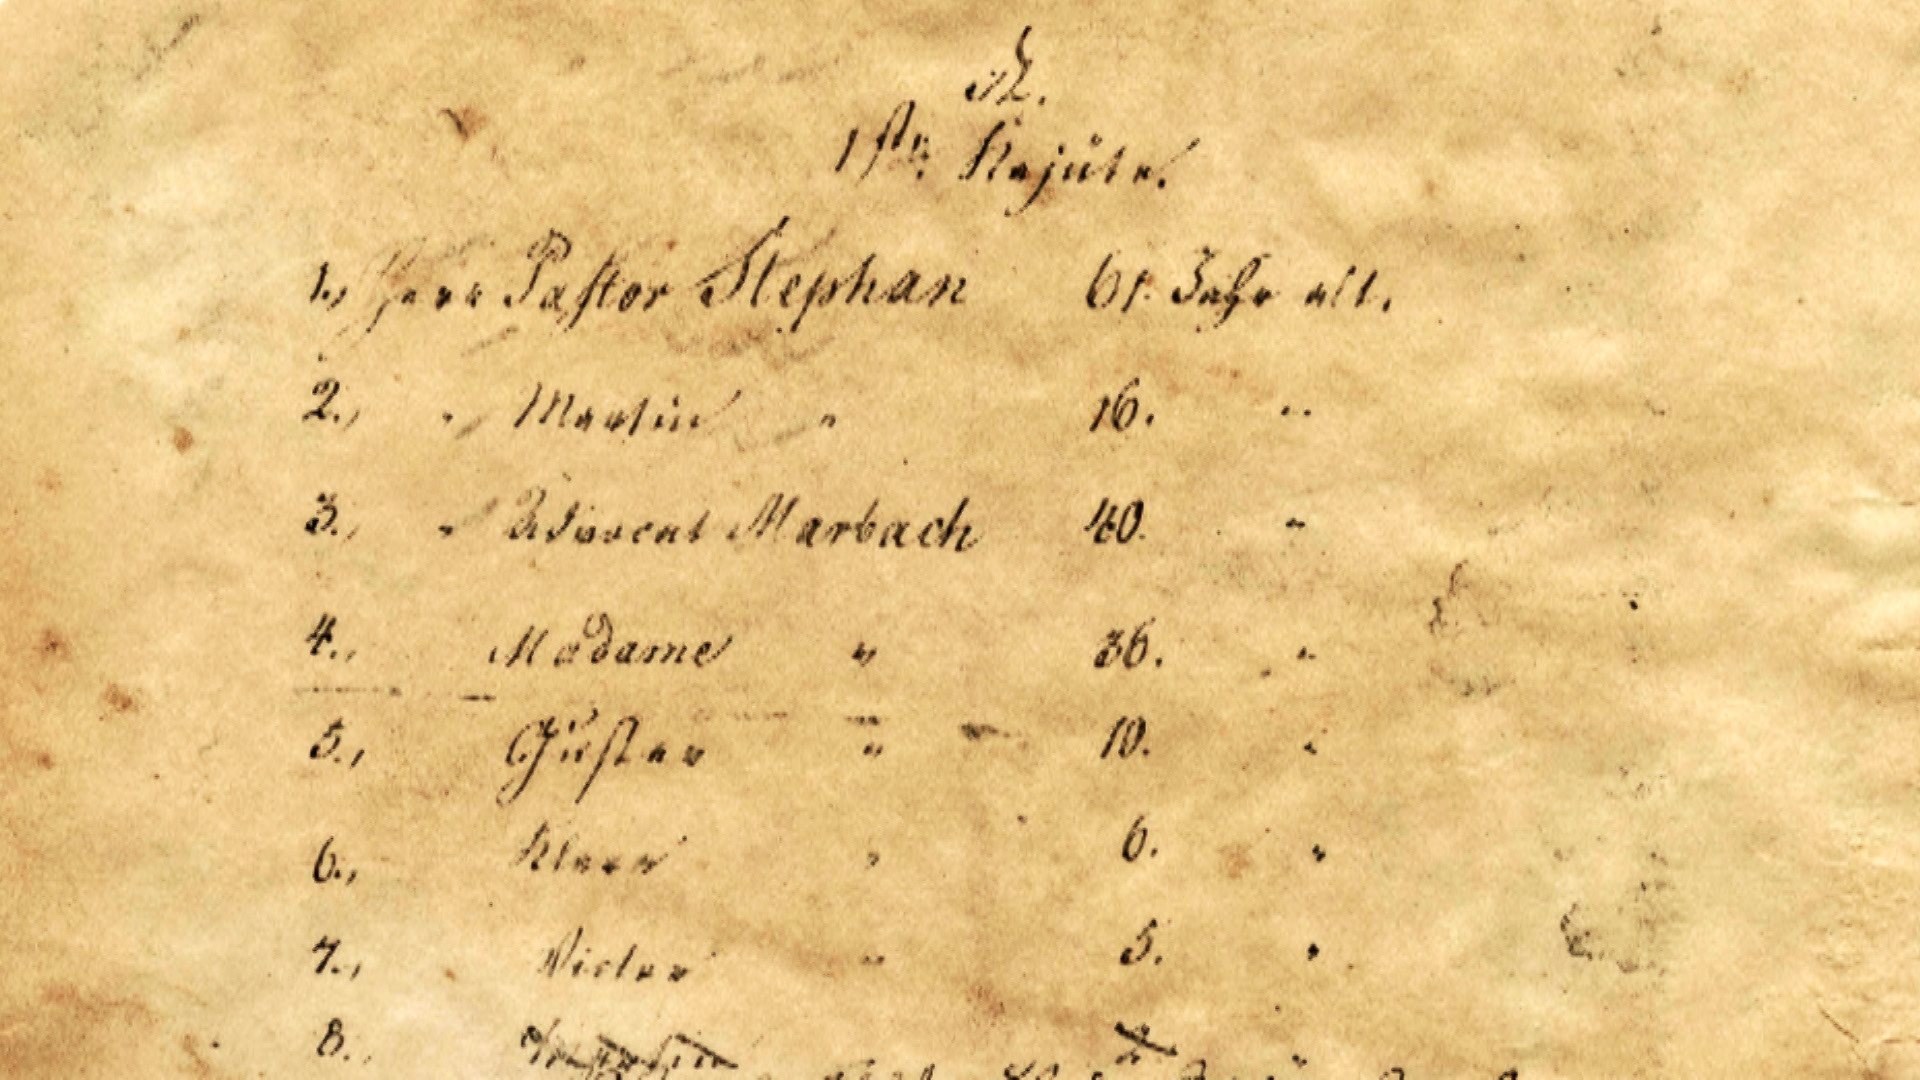 1ste Kajüte.
1., Herr Pastor Stephan 61. Jahr alt.
2., " Martin " 16. "
3., " Advocat Marbach 40. "
4., Madame " 36. "
5., Gustav " 10. "
6., Clara " 6. "
7., Victor " 5. "
8., 2. "